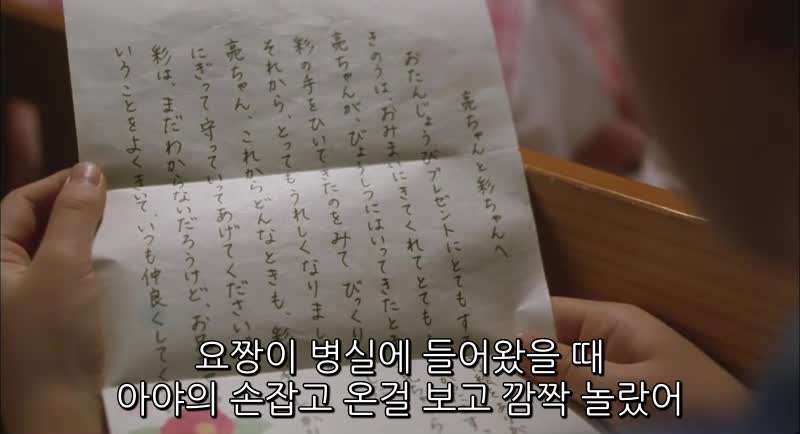 亮ちゃんと彩ちゃんへ
おたんじょうびプレゼントにとてもす
きのうは、おみまいにきてくれてとても
亮ちゃんが、びょうしつにはいってきたと
彩の手をひいてきたのをみて びっくり
それから、とってもうれしくなりまし
亮ちゃん、これからどんなときも、彩
にぎって守っていってあげてください
彩は、まだわからないだろうけど、お
いうことをよくきいて、いつも仲良くしてく
요짱이 병실에 들어왔을 때
아야의 손잡고 온걸 보고 깜짝 놀랐어